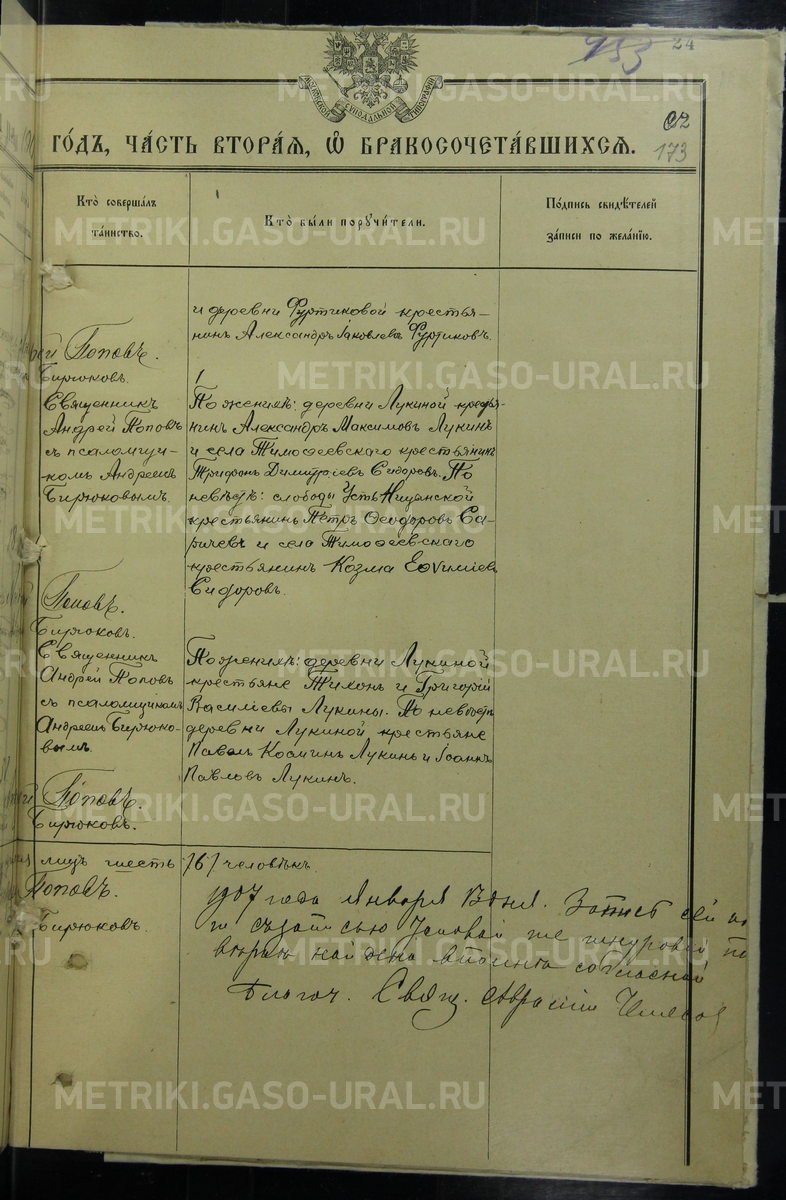 24
173
МОСКОВСКОЙ СѴНОДАЛЬНОЙ ТИПОГРАФІИ
ГО́ДЪ, ЧА́СТЬ ВТОРА́Я, Ѡ БРАКОСОЧЕТА́ВШИХСЯ.
Кто̀ соверша́лъ
та́инство.
Кто̀ бы́ли поручи́тели.
По́дпись свидѣ́телей
за́писи по жела́нію.
и деревни Фуртиковой крестья-
нинъ Александръ Іаковлевъ Фуртиковъ.
Поповъ.
Бирюковъ.
Священникъ
Андрей Поповъ
съ псаломщи-
комъ Андреемъ
Бирюковымъ.
По женихѣ: деревни Лукиной крестья-
нинъ Александръ Максимовъ Лукинъ
и села Тимофеевскаго крестьянинъ
Трифонъ Димитріевъ Сидоровъ. По
невѣстѣ: слободы Усть Ницинской
крестьянинъ Петръ Ѳеодоровъ Са-
ричевъ и села Тимофеевскаго
крестьянинъ Козма Евѳиміевъ
Сидоровъ.
Поповъ.
Бирюковъ.
Священникъ
Андрей Поповъ
съ псаломщикомъ
Андреемъ Бирюко-
вымъ.
По женихѣ: деревни Лукиной
крестьяне Тихонъ и Григорій
Василіевы Лукины. По невѣстѣ
деревни Лукиной крестьяне
Павелъ Косминъ Лукинъ и Іоаннъ
Павловъ Лукинъ.
Поповъ.
Бирюковъ.
лицъ шесть /6/ человѣкъ.
Поповъ.
Бирюковъ.
1907 года Января дня.
согласной
Благоч. Свящ.
METRIKI.GASO-URAL.RU